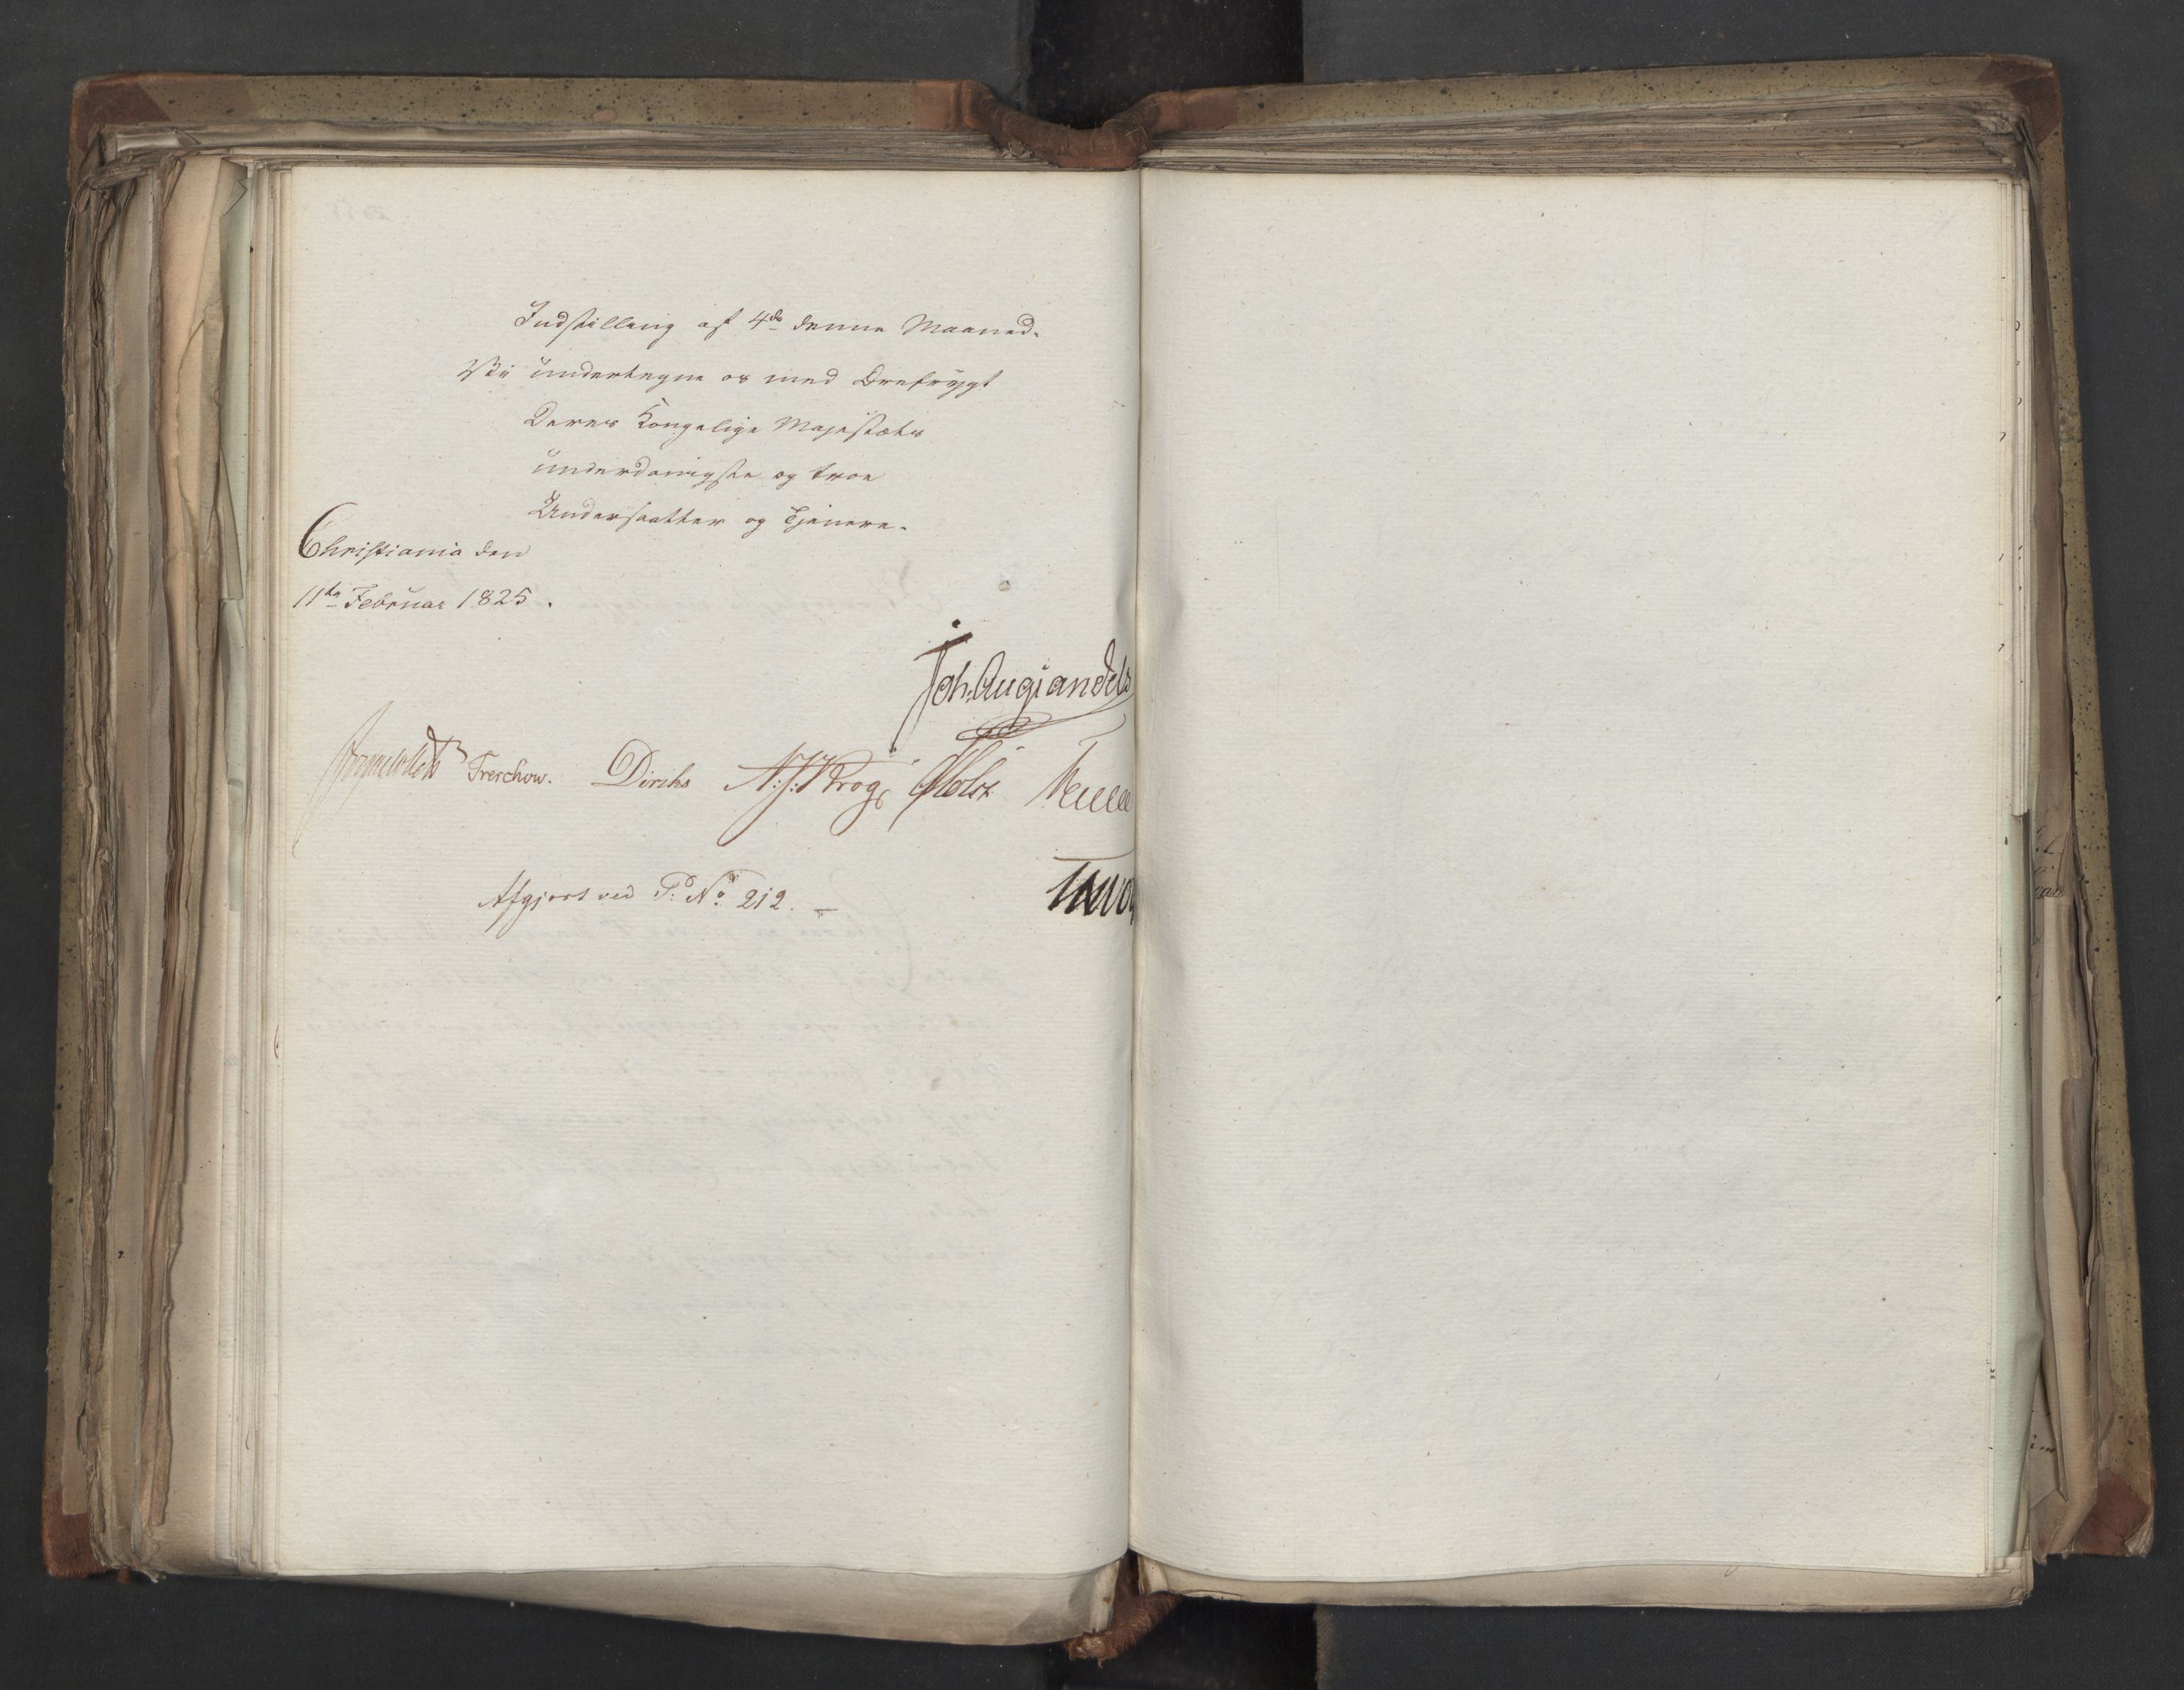 Indstilling af 4de denne Maaned.
Vii undertegne os med Ærefrÿgt
Deres Kongelige Majestæts
underdanigste og troe
Undersaatter og Tjenere.
Christiania den
11te Februar 1825.
Joh. Aug. Sandels
Sommerhielm Treschow. Diriks N. J. Krog Holst
Afgjort ved P. No. 212. —